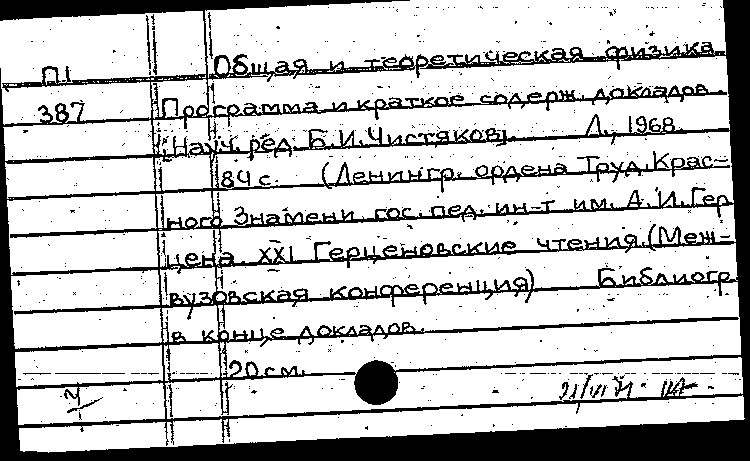 П1 Общая и теоретическая физика
387 Программа и краткое содерж. докладов.
[Науч. ред. Б.И.Чистяков]. Л., 1968.
84 с. (Ленингр. ордена Труд.Крас-
ного Знамени гос. пед. ин-т им. А.И.Гер
цена. XXI Герценовские чтения.(Меж-
вузовская конференция) Библиогр.
в конце докладов.
20 см.